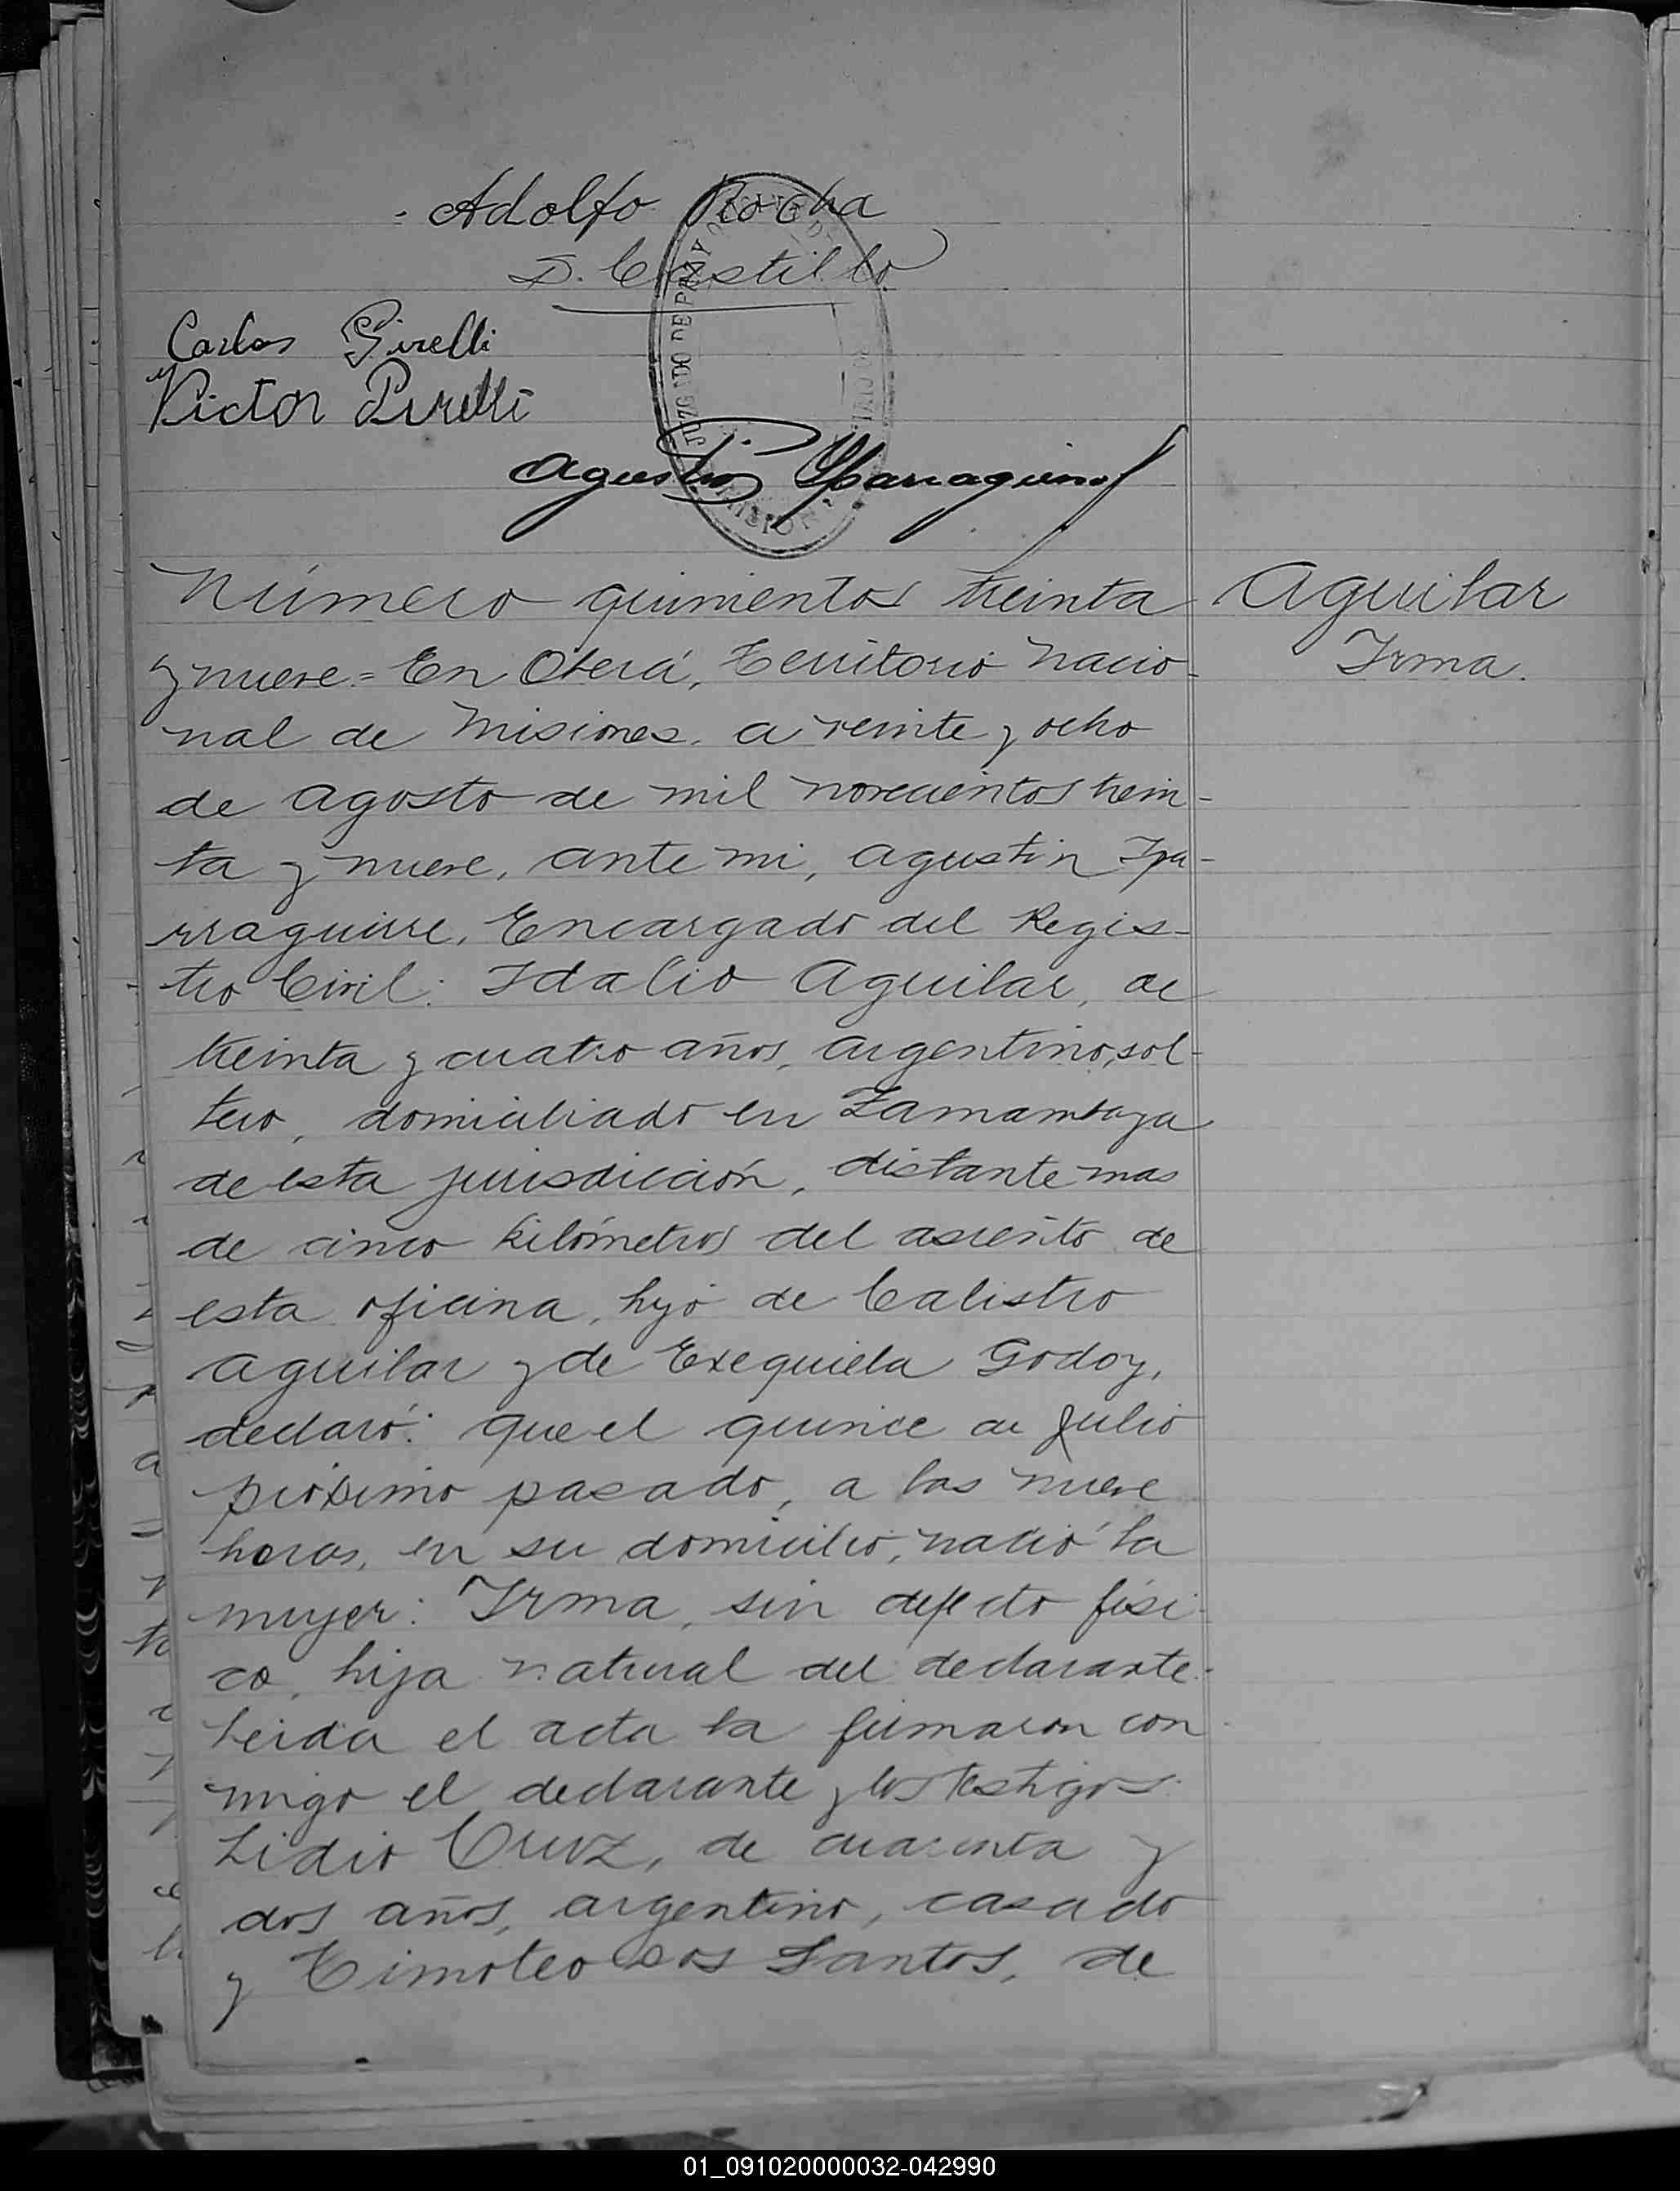 Adolfo Rocha
D. Castillo
Carlos Pirelli
Victor Pirelli
JUZGADO DE PAZ Y
Agustin Yparraguirre
Número quinientos treinta
y nueve = En Oberá, Territorio nacio-
nal de Misiones, a veinte y ocho
de agosto de mil novecientos trein-
ta y nueve, ante mi, Agustin Ipa-
rraguirre, Encargado del Regis-
tro Civil: Idalio Aguilar, de
treinta y cuatro años, argentino, sol-
tero, domiciliado en Zamambaya
de esta jurisdicción, distante mas
de cinco kilómetros del asiento de
esta oficina, hijo de Calistro
Aguilar y de Exequiela Godoy,
declaró: que el quince de Julio
próximo pasado, a las nueve
horas, en su domicilio, nació la
mujer: Irma, sin defecto físi-
co, hija natural del declarante.
Leida el acta la firmaron con
migo el declarante y los testigos:
Lidio Cruz, de cuarenta y
dos años, argentino, casado
y Timoteo Dos Santos, de
Aguilar
Irma.
01_091020000032-042990